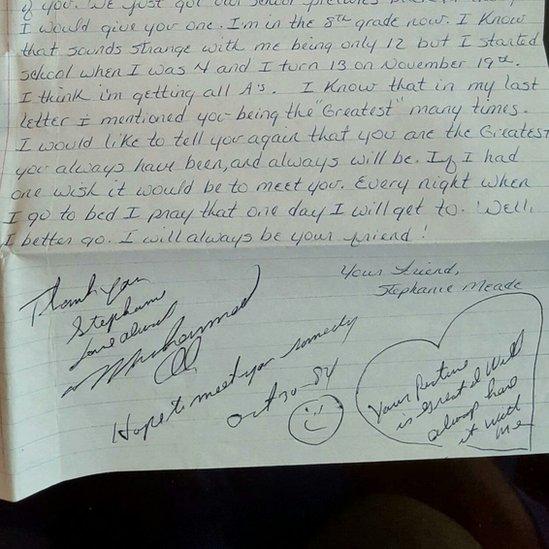 of you. We just got our school pictures back
I would give you one. I'm in the 8th grade now. I Know
that sounds strange with me being only 12 but I started
school when I was 4 and I turn 13 on November 19th.
I think i'm getting all A's. I Know that in my last
letter I mentioned you being the "Greatest" many times.
I would like to tell you again that you are the Greatest
you always have been, and always will be. If I had
one wish it would be to meet you. Every night when
I go to bed I pray that one day I will get to. Well,
I better go. I will always be your friend!
Your Friend,
Stephanie Meade
Thank you
Stephanie
Love always
Muhammad
Ali
Hope to meet you someday
Oct 30-84
Your Picture
is great I Will
always have
it with
me